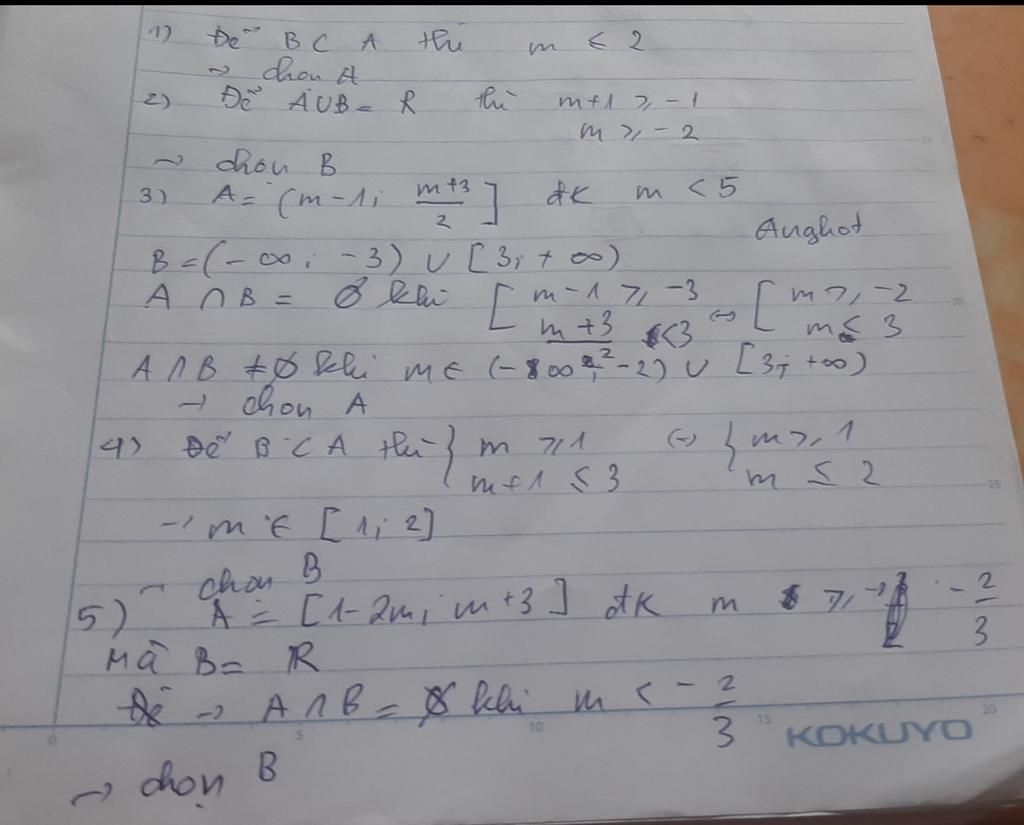 1) Để B ⊂ A thì m < 2
→ chọn A
2) Để A∪B = R thì m+1 ≥ -1
m ≥ -2
→ chọn B
3) A = (m-1; \frac{m+3}{2}] đk m < 5
Aughot
B = (-∞; -3) ∪ [3; +∞)
A ∩ B = ∅ khi [ m-1 ≥ -3 ⇔ [ m ≥ -2
\frac{m+3}{2} < 3 m < 3
A ∩ B ≠ ∅ khi m ∈ (-∞; -2) ∪ [3; +∞)
→ chọn A
4) Để B ⊂ A thì { m ≥ 1 ⇔ { m ≥ 1
m+1 ≤ 3 m ≤ 2
→ m ∈ [1; 2]
→ chọn B
5) A = [1-2m; m+3] đk m ≥ -\frac{2}{3}
Mà B = R
→ A ∩ B = ∅ khi m < -\frac{2}{3}
→ chọn B
0 5 10 15 20
KOKUYO
25